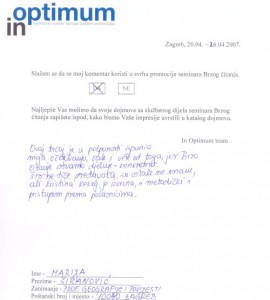 optimum
in
Zagreb, 20.04. - 26.04.2007.
Slažem se da se moj komentar koristi u svrhu promocije seminara Brzog čitanja.
DA NE
Najljepše Vas molimo da svoje dojmove sa službenog dijela seminara Brzog
čitanja zapišete ispod, kako bismo Vaše impresije uvrstili u katalog dojmova.
In Optimum team
Ovaj tečaj je u potpunosti ispunio
moja očekivanja, čak i više od toga, jer Brzo
čitanje stvarno djeluje - konkretno.
Što se tiče predavača, za ostale ne znam,
ali Kristina je, metodički i
pristupom prema polaznicima.
Ime - MARIJA
Prezime -
Zanimanje - PROF. GEOGRAFIJE I POVIJESTI
Poštanski broj i mjesto - 10040 ZAGREB